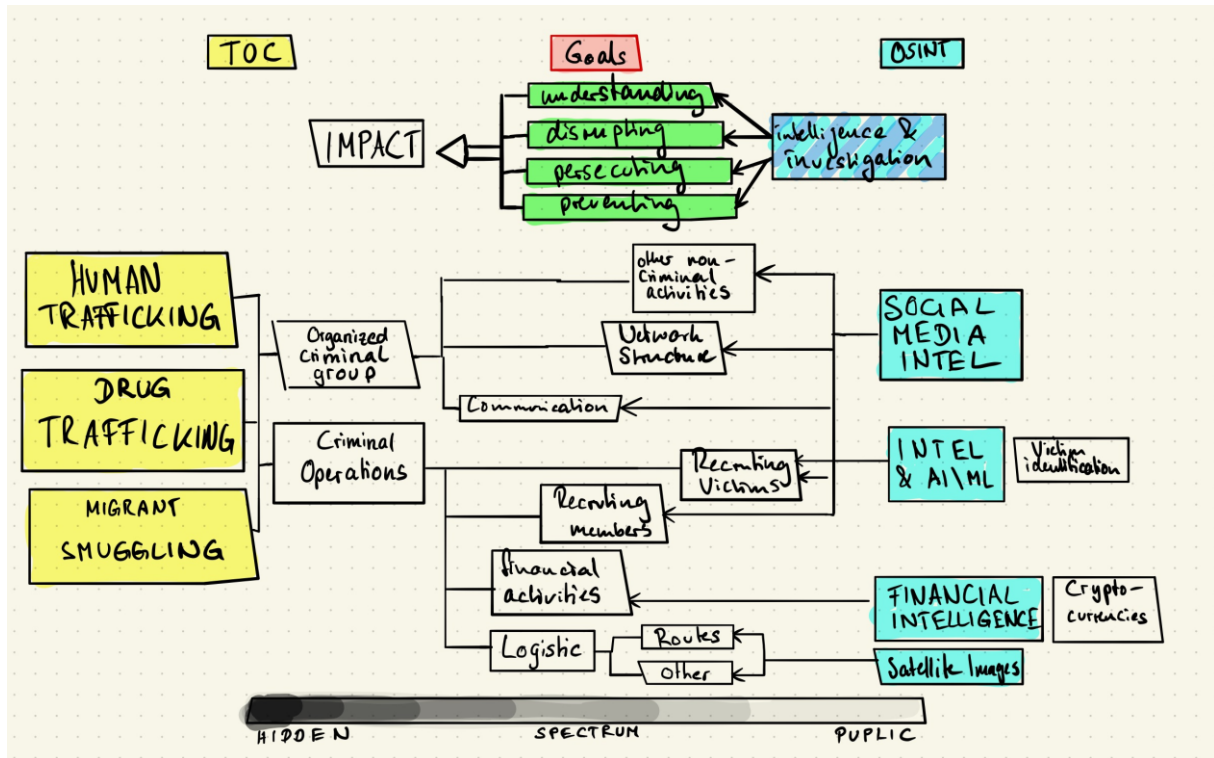 TOC
Goals
OSINT
understanding
disrupting
persecuting
preventing
IMPACT
intelligence &
investigation
HUMAN
TRAFFICKING
DRUG
TRAFFICKING
MIGRANT
SMUGGLING
Organized
criminal
group
Criminal
Operations
other non-
criminal
activities
Network
Structure
Communication
Recruting
Victims
Recruting
members
financial
activities
Logistic
Routes
Other
SOCIAL
MEDIA
INTEL
INTEL
& AI\ML
Victim
identification
FINANCIAL
INTELLIGENCE
Crypto-
currencies
Satellite Images
HIDDEN
SPECTRUM
PUPLIC